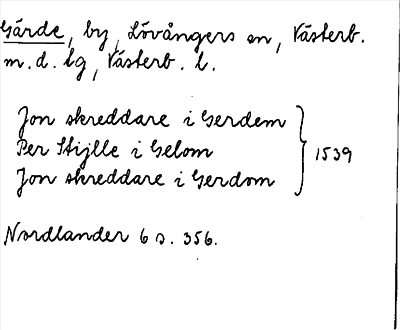 Gärde, by, Lövångers sn, Västerb.
m. d. lg, Västerb. l.
Jon skreddare i Gerdem
Per Stijlle i Gelom
Jon skreddare i Gerdom
1539
Nordlander 6 s. 356.